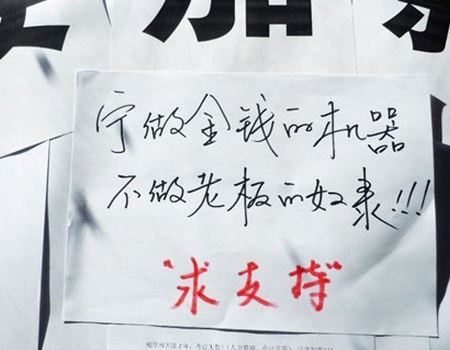 加
宁做金钱的机器
不做老板的奴隶!!!
"求支持"